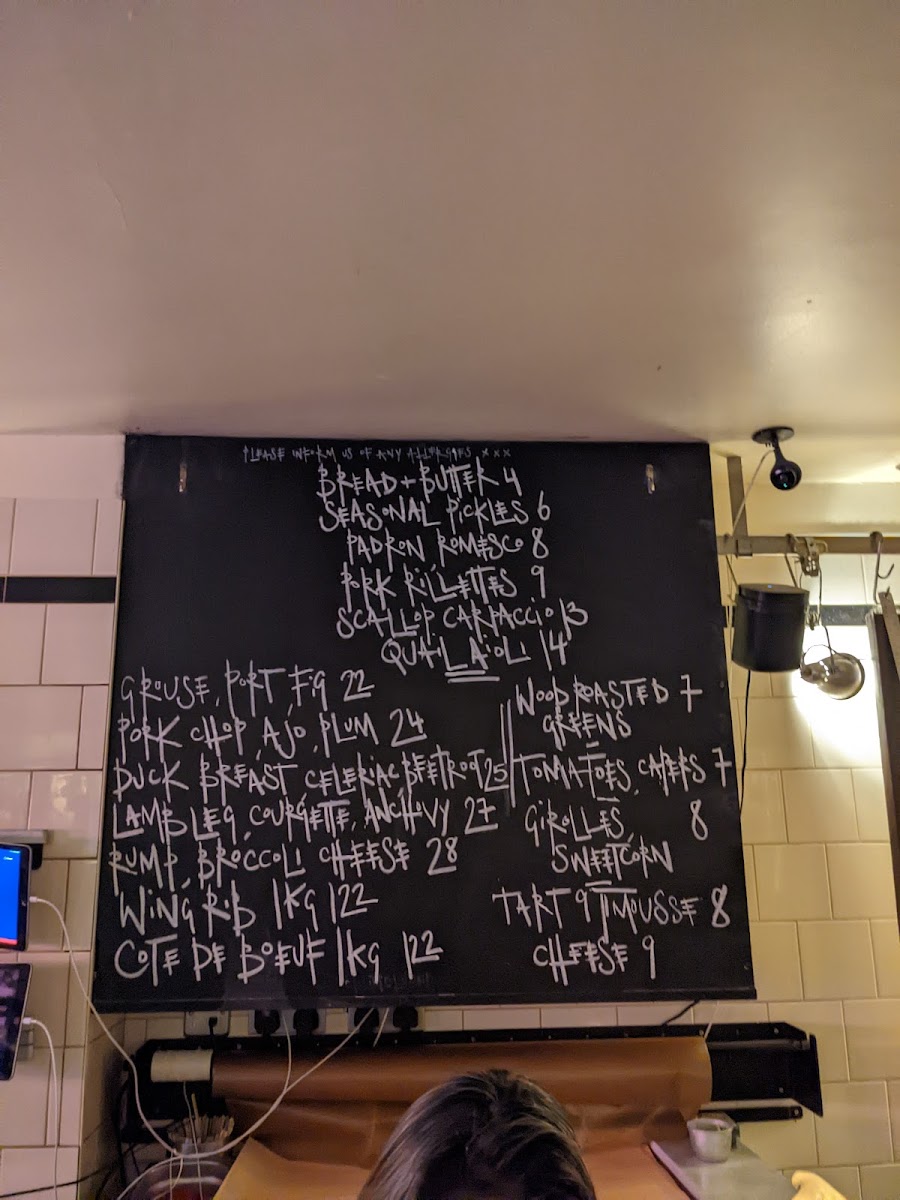 PLEASE INFORM US OF ANY ALLERGIES x x x
BREAD + BUTTER 4
SEASONAL PICKLES 6
PADRON, ROMESCO 8
PORK RILLETTES 9
SCALLOP CARPACCIO 13
QUAIL, AIOLI 14
GROUSE, PORT, FIG 22
PORK CHOP, AJO, PLUM 24
DUCK BREAST, CELERIAC, BEETROOT 25
LAMB LEG, COURGETTE, ANCHOVY 27
RUMP, BROCCOLI CHEESE 28
WING RIB 1KG 122
COTE DE BOEUF 1KG 122
WOOD ROASTED 7
GREENS
TOMATOES, CAPERS 7
GIROLLES, 8
SWEETCORN
TART 9 MOUSSE 8
CHEESE 9